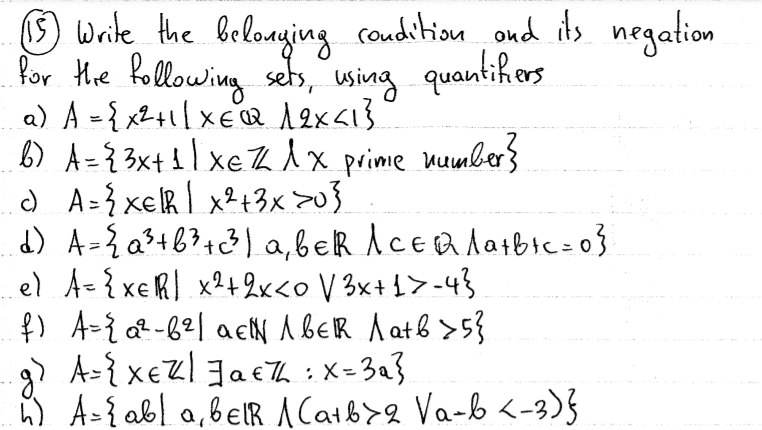 (15) Write the belonging condition and its negation
for the following sets, using quantifiers
a) A = { x²+1 | x∈ℚ ∧ 2x<1}
b) A = { 3x+1 | x∈ℤ ∧ x prime number}
c) A = { x∈ℝ | x²+3x >0}
d) A = { a³+b³+c³ | a,b∈ℝ ∧ c∈ℚ ∧ a+b+c=0}
e) A = { x∈ℝ | x²+2x<0 ∨ 3x+1>-4}
f) A = { a²-b² | a∈ℕ ∧ b∈ℝ ∧ a+b >5}
g) A = { x∈ℤ | ∃a∈ℤ : x=3a}
h) A = { ab | a,b∈ℝ ∧ (a+b>2 ∨ a-b <-3)}